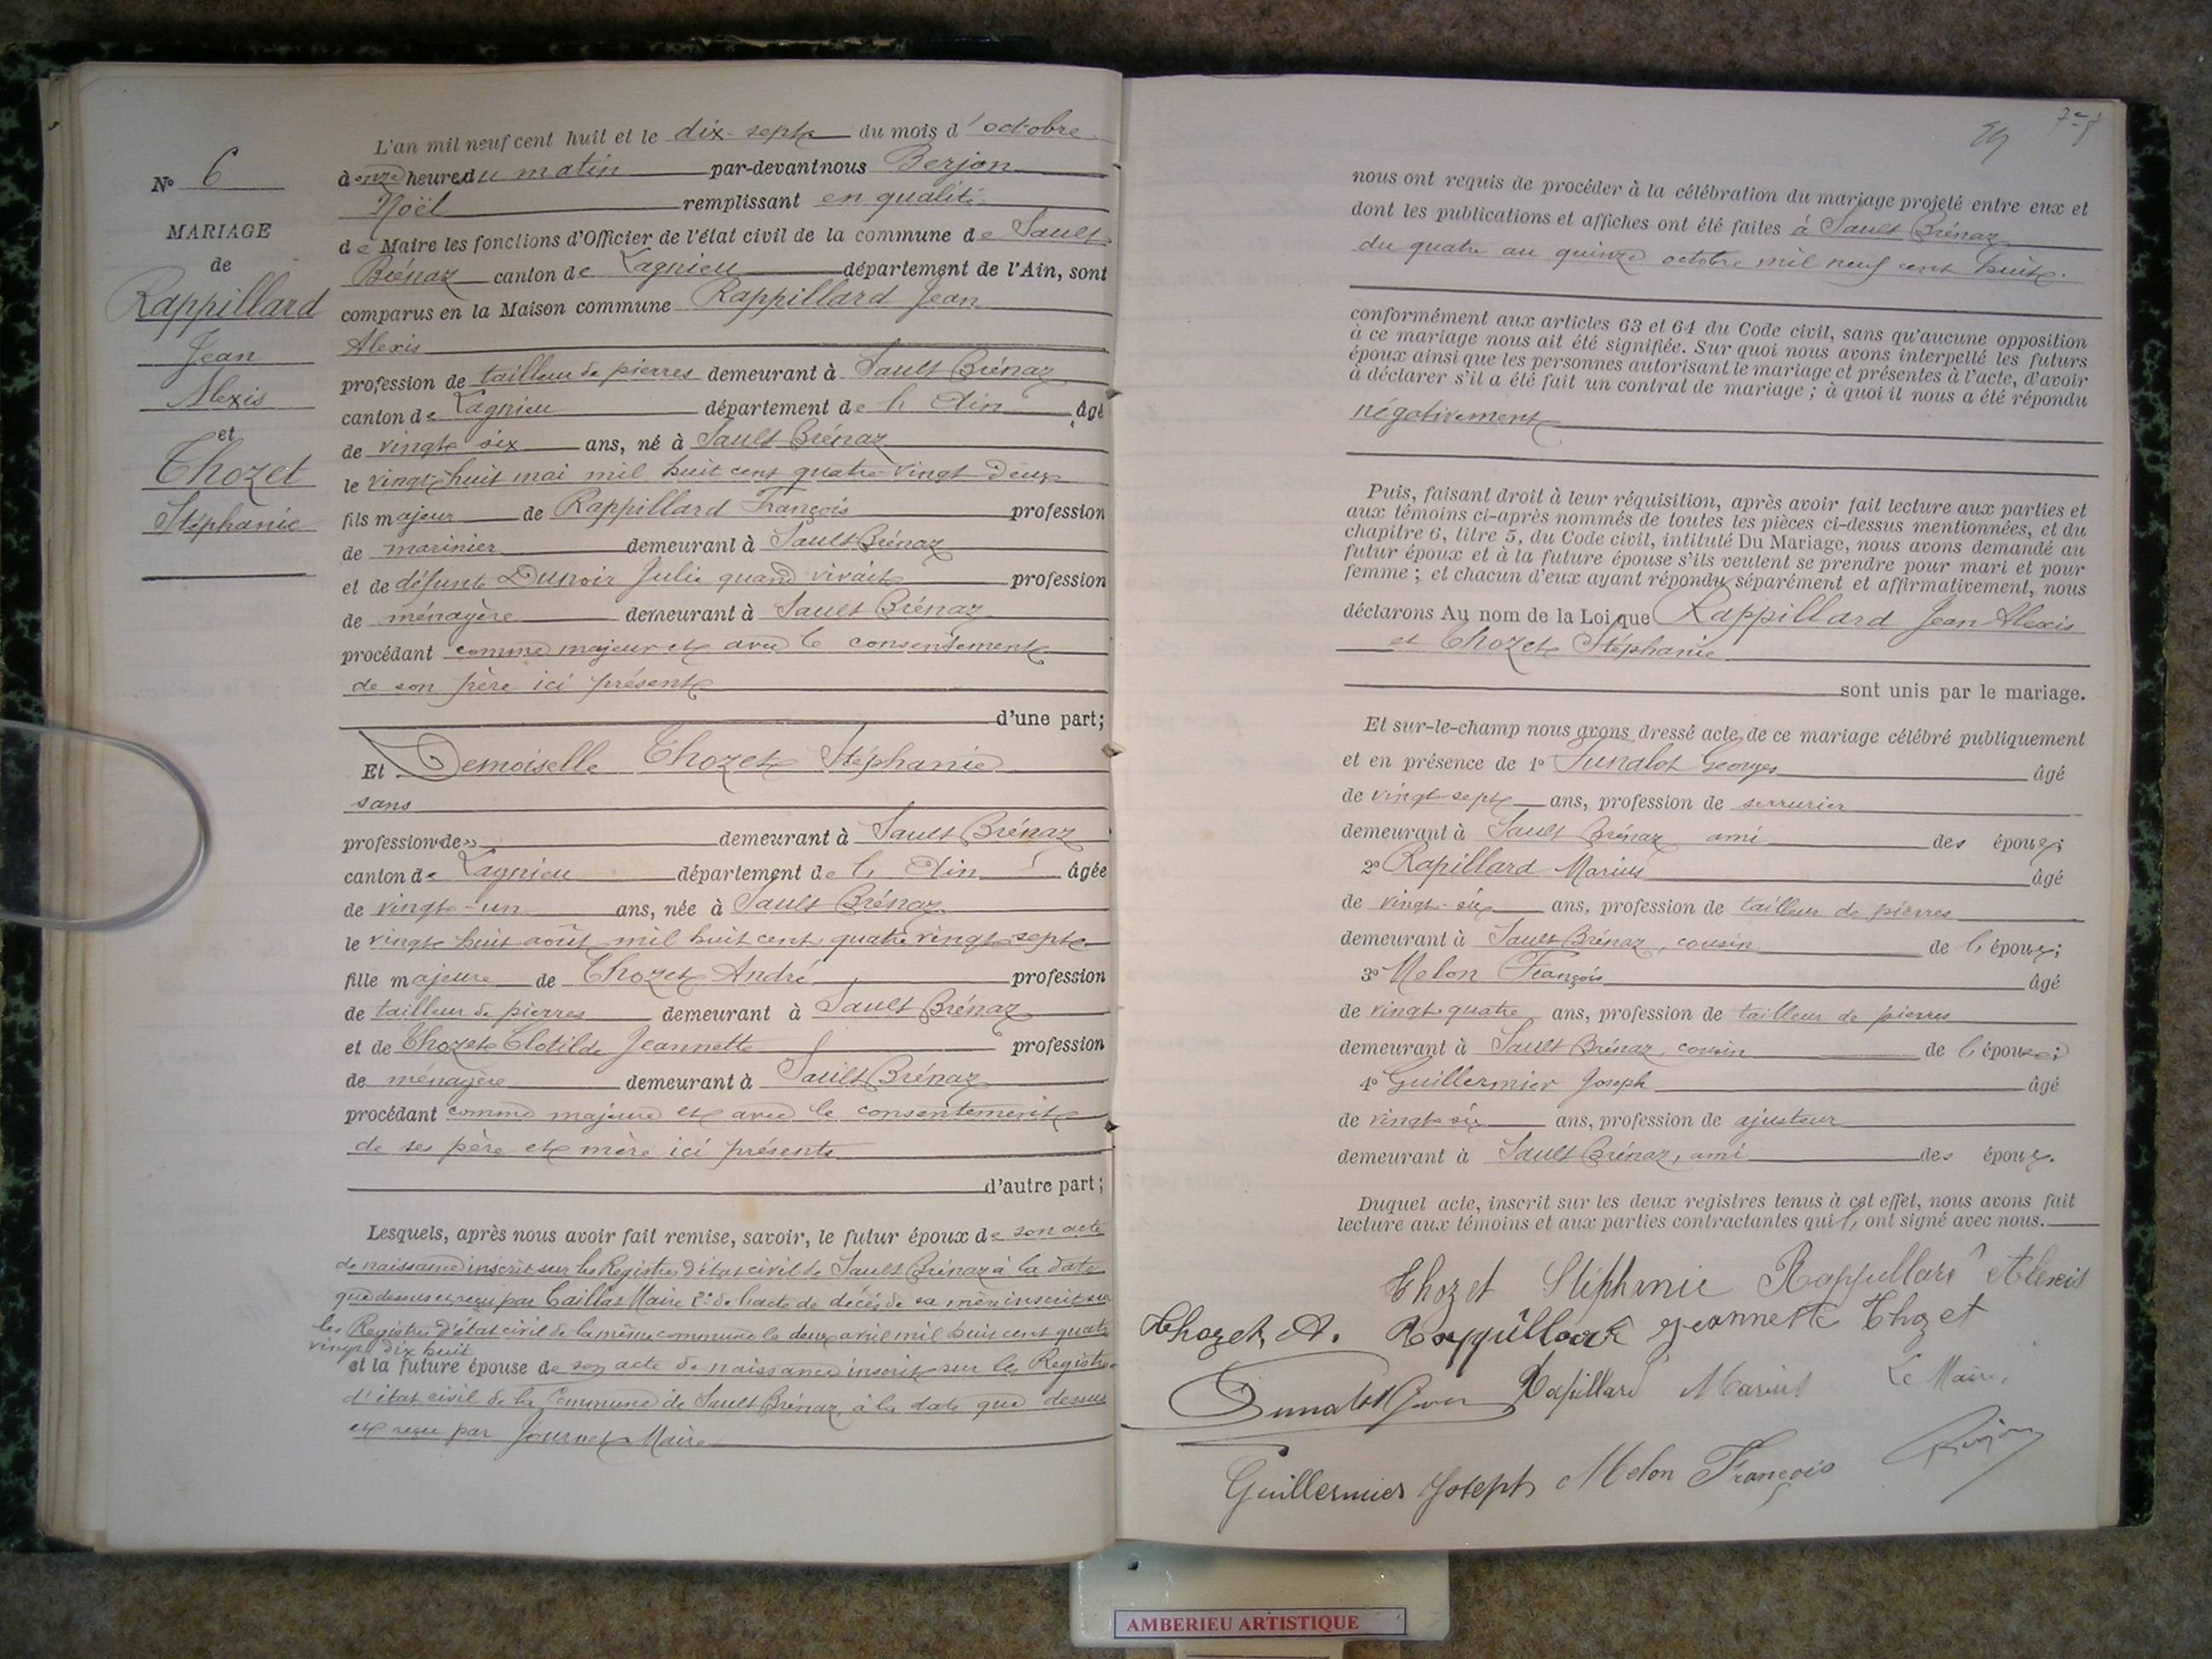 N° 6
MARIAGE
de
Rappillard
Jean
Alexis
et
Thozet
Stéphanie
L'an mil neuf cent huit et le dix-sept du mois d'octobre
à onze heures du matin par-devant nous Berjon
Noël remplissant en qualité
de Maire les fonctions d'Officier de l'état civil de la commune de Sault
Brénaz canton de Lagnieu département de l'Ain, sont
comparus en la Maison commune Rappillard Jean
Alexis
profession de tailleur de pierres demeurant à Sault Brénaz
canton de Lagnieu département de l'Ain âgé
de vingt six ans, né à Sault Brénaz
le vingt-huit mai mil huit cent quatre-vingt deux
fils majeur de Rappillard François profession
de marinier demeurant à Sault Brénaz
et de défunte Dunoir Julie quand vivait profession
de ménagère demeurant à Sault Brénaz
procédant comme majeur et avec le consentement
de son père ici présent
d'une part;
Et Demoiselle Thozet Stéphanie
sans
profession de » demeurant à Sault Brénaz
canton de Lagnieu département de l'Ain âgée
de vingt-un ans, née à Sault Brénaz
le vingt huit août mil huit cent quatre vingt sept
fille majeure de Thozet André profession
de tailleur de pierres demeurant à Sault Brénaz
et de Thozet Clotilde Jeannette profession
de ménagère demeurant à Sault Brénaz
procédant comme majeure et avec le consentement
de ses père et mère ici présents
d'autre part;
Lesquels, après nous avoir fait remise, savoir, le futur époux de son acte
de naissance inscrit sur les Registres d'état civil de Sault Brénaz à la date
que dessus et reçu par Caillat Maire 2° de l'acte de décès de sa mère inscrit sur
les Registres d'état civil de la même commune le deux avril mil huit cent quatre
vingt dix huit
et la future épouse de son acte de naissance inscrit sur les Registres
d'état civil de la Commune de Sault Brénaz, à la date que dessus
et reçu par Journet Maire
nous ont requis de procéder à la célébration du mariage projeté entre eux et
dont les publications et affiches ont été faites à Sault Brénaz
du quatre au quinze octobre mil neuf cent huit.
conformément aux articles 63 et 64 du Code civil, sans qu'aucune opposition
à ce mariage nous ait été signifiée. Sur quoi nous avons interpellé les futurs
époux ainsi que les personnes autorisant le mariage et présentes à l'acte, d'avoir
à déclarer s'il a été fait un contrat de mariage ; à quoi il nous a été répondu
négativement
Puis, faisant droit à leur réquisition, après avoir fait lecture aux parties et
aux témoins ci-après nommés de toutes les pièces ci-dessus mentionnées, et du
chapitre 6, titre 5, du Code civil, intitulé Du Mariage, nous avons demandé au
futur époux et à la future épouse s'ils veulent se prendre pour mari et pour
femme ; et chacun d'eux ayant répondu séparément et affirmativement, nous
déclarons Au nom de la Loi que Rappillard Jean Alexis
et Thozet Stéphanie
sont unis par le mariage.
Et sur-le-champ nous avons dressé acte de ce mariage célébré publiquement
et en présence de 1° Georges âgé
de vingt-sept ans, profession de serrurier
demeurant à Sault Brénaz ami des époux;
2° Rapillard Marius âgé
de vingt-six ans, profession de tailleur de pierres
demeurant à Sault Brénaz, cousin de l'époux;
3° Melon François âgé
de vingt quatre ans, profession de tailleur de pierres
demeurant à Sault Brénaz, cousin de l'épouse;
4° Guillermier Joseph âgé
de vingt six ans, profession de ajusteur
demeurant à Sault Brénaz, ami des époux.
Duquel acte, inscrit sur les deux registres tenus à cet effet, nous avons fait
lecture aux témoins et aux parties contractantes qui ont signé avec nous.
Thozet Stéphanie Rappillard Alexis
Thozet A. Rappillard Jeannette Thozet
Rapillard Marius Le Maire,
Berjon
Guillermier Joseph Melon François
AMBERIEU ARTISTIQUE